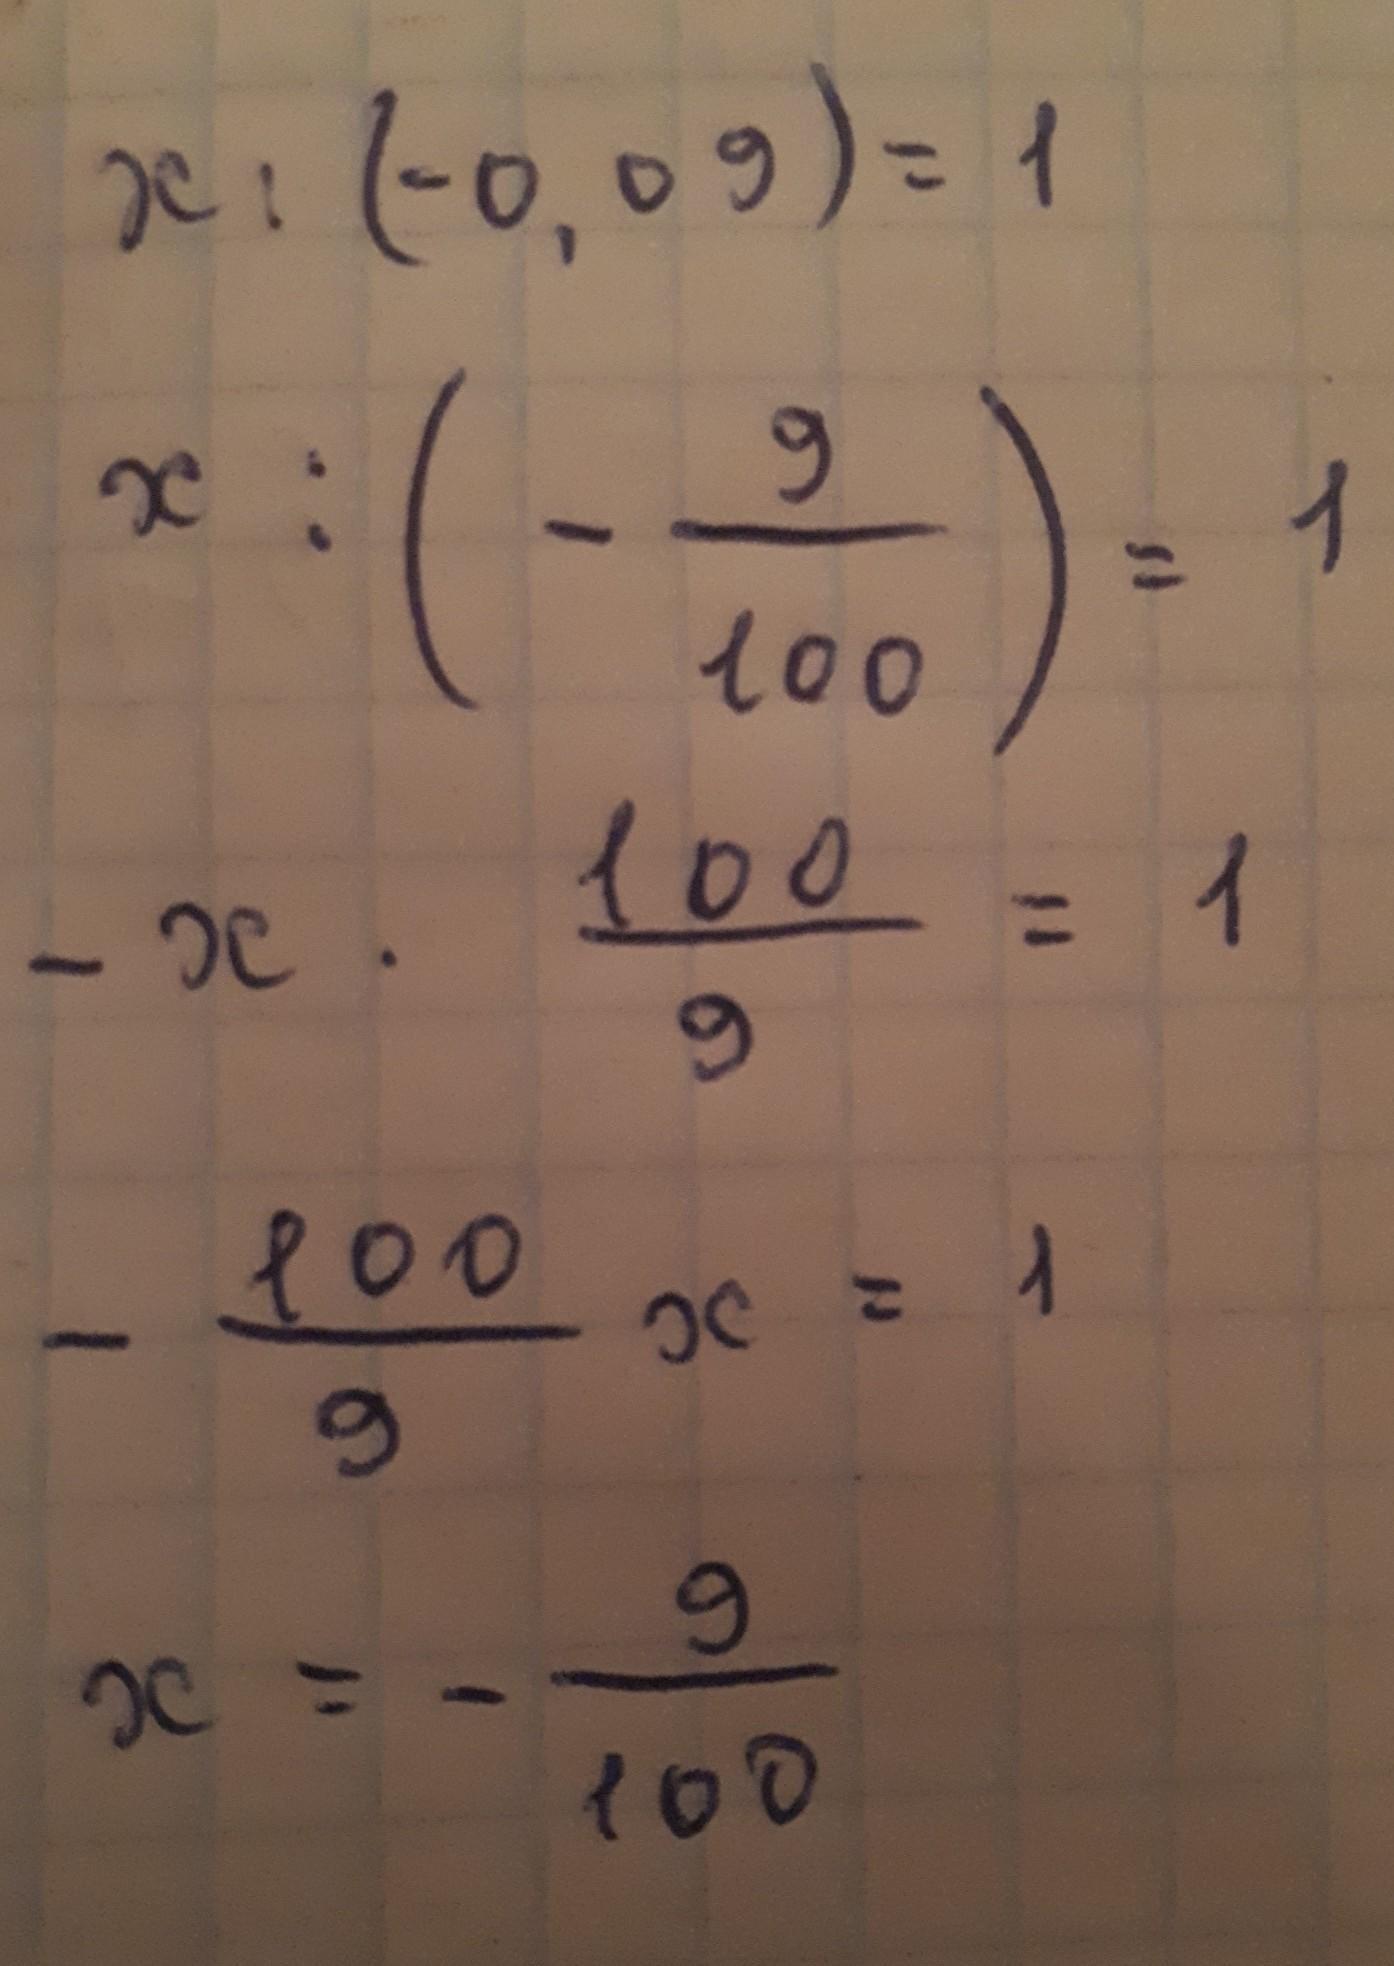 x : (-0,09) = 1
x : (- 9/100) = 1
- x · 100/9 = 1
- 100/9 x = 1
x = - 9/100